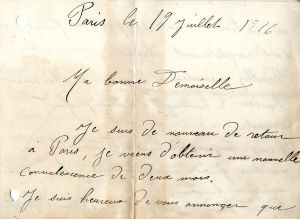 Paris le 19 Juillet 1916
Ma bonne Demoiselle
Je suis de nouveau de retour
à Paris, je viens d'obtenir une nouvelle
convalescence de deux mois.
Je suis heureux de vous annonçer que